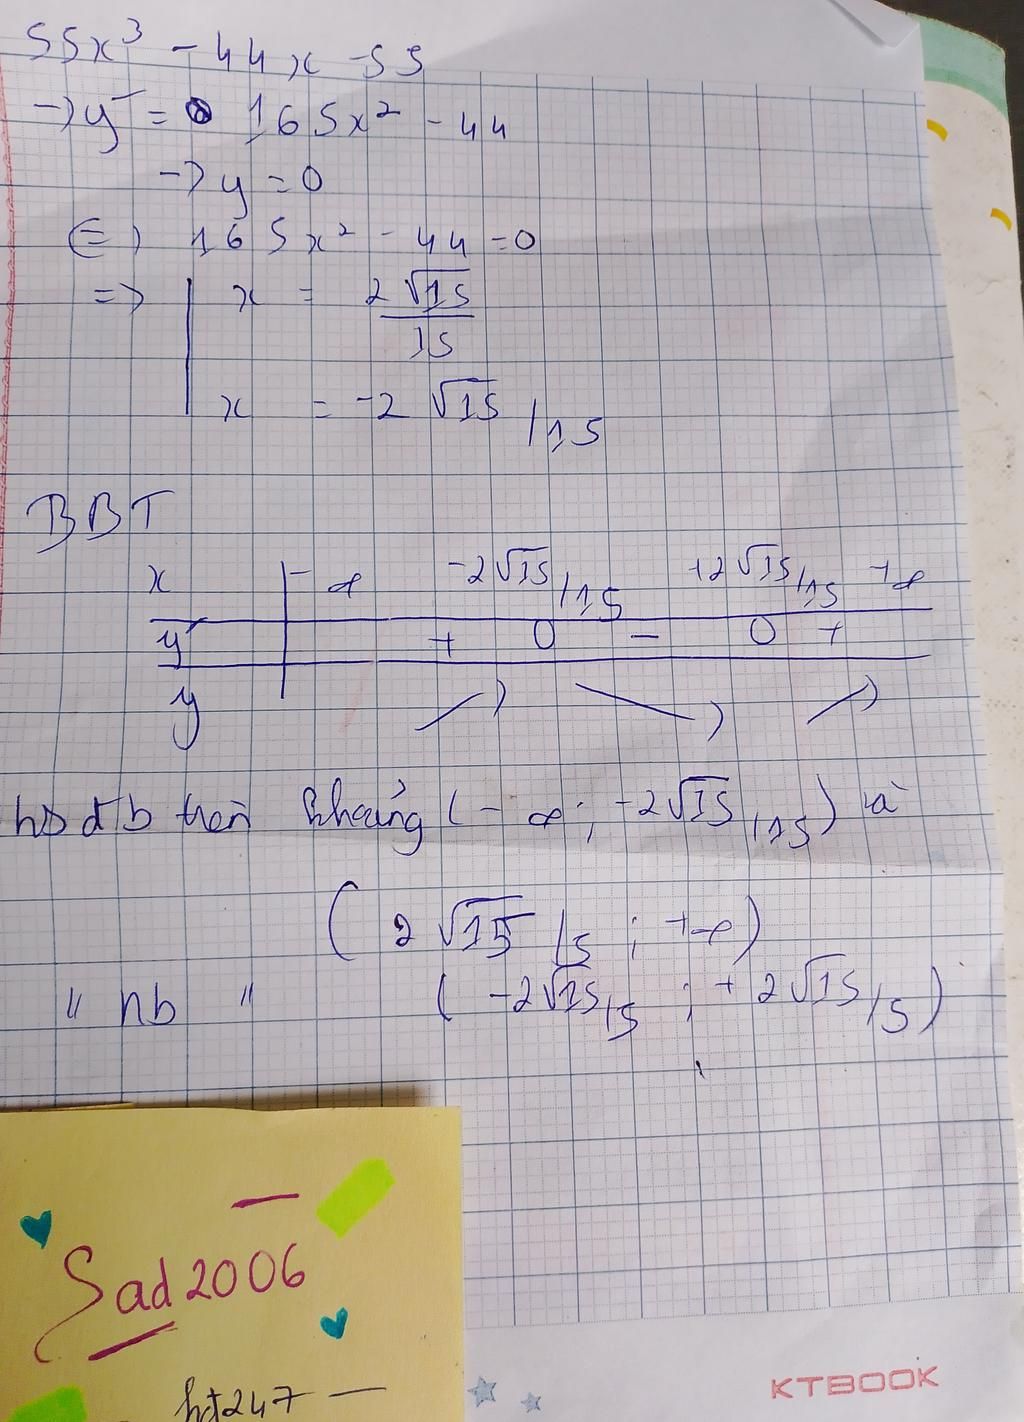 55x³ - 44x - 55
→ y' = 165x² - 44
→ y = 0
⇔ 165x² - 44 = 0
=> | x = 2√15 / 15
x = -2√15/15
BBT
x | -∞ -2√15/15 +2√15/15 +∞
y' + 0 - 0 +
y ↗ ↘ ↗
hs đb trên khoảng (-∞; -2√15/15) và
(2√15/5; +∞)
" nb " (-2√15/5; +2√15/5)
Sad2006
hđ247
KTBOOK